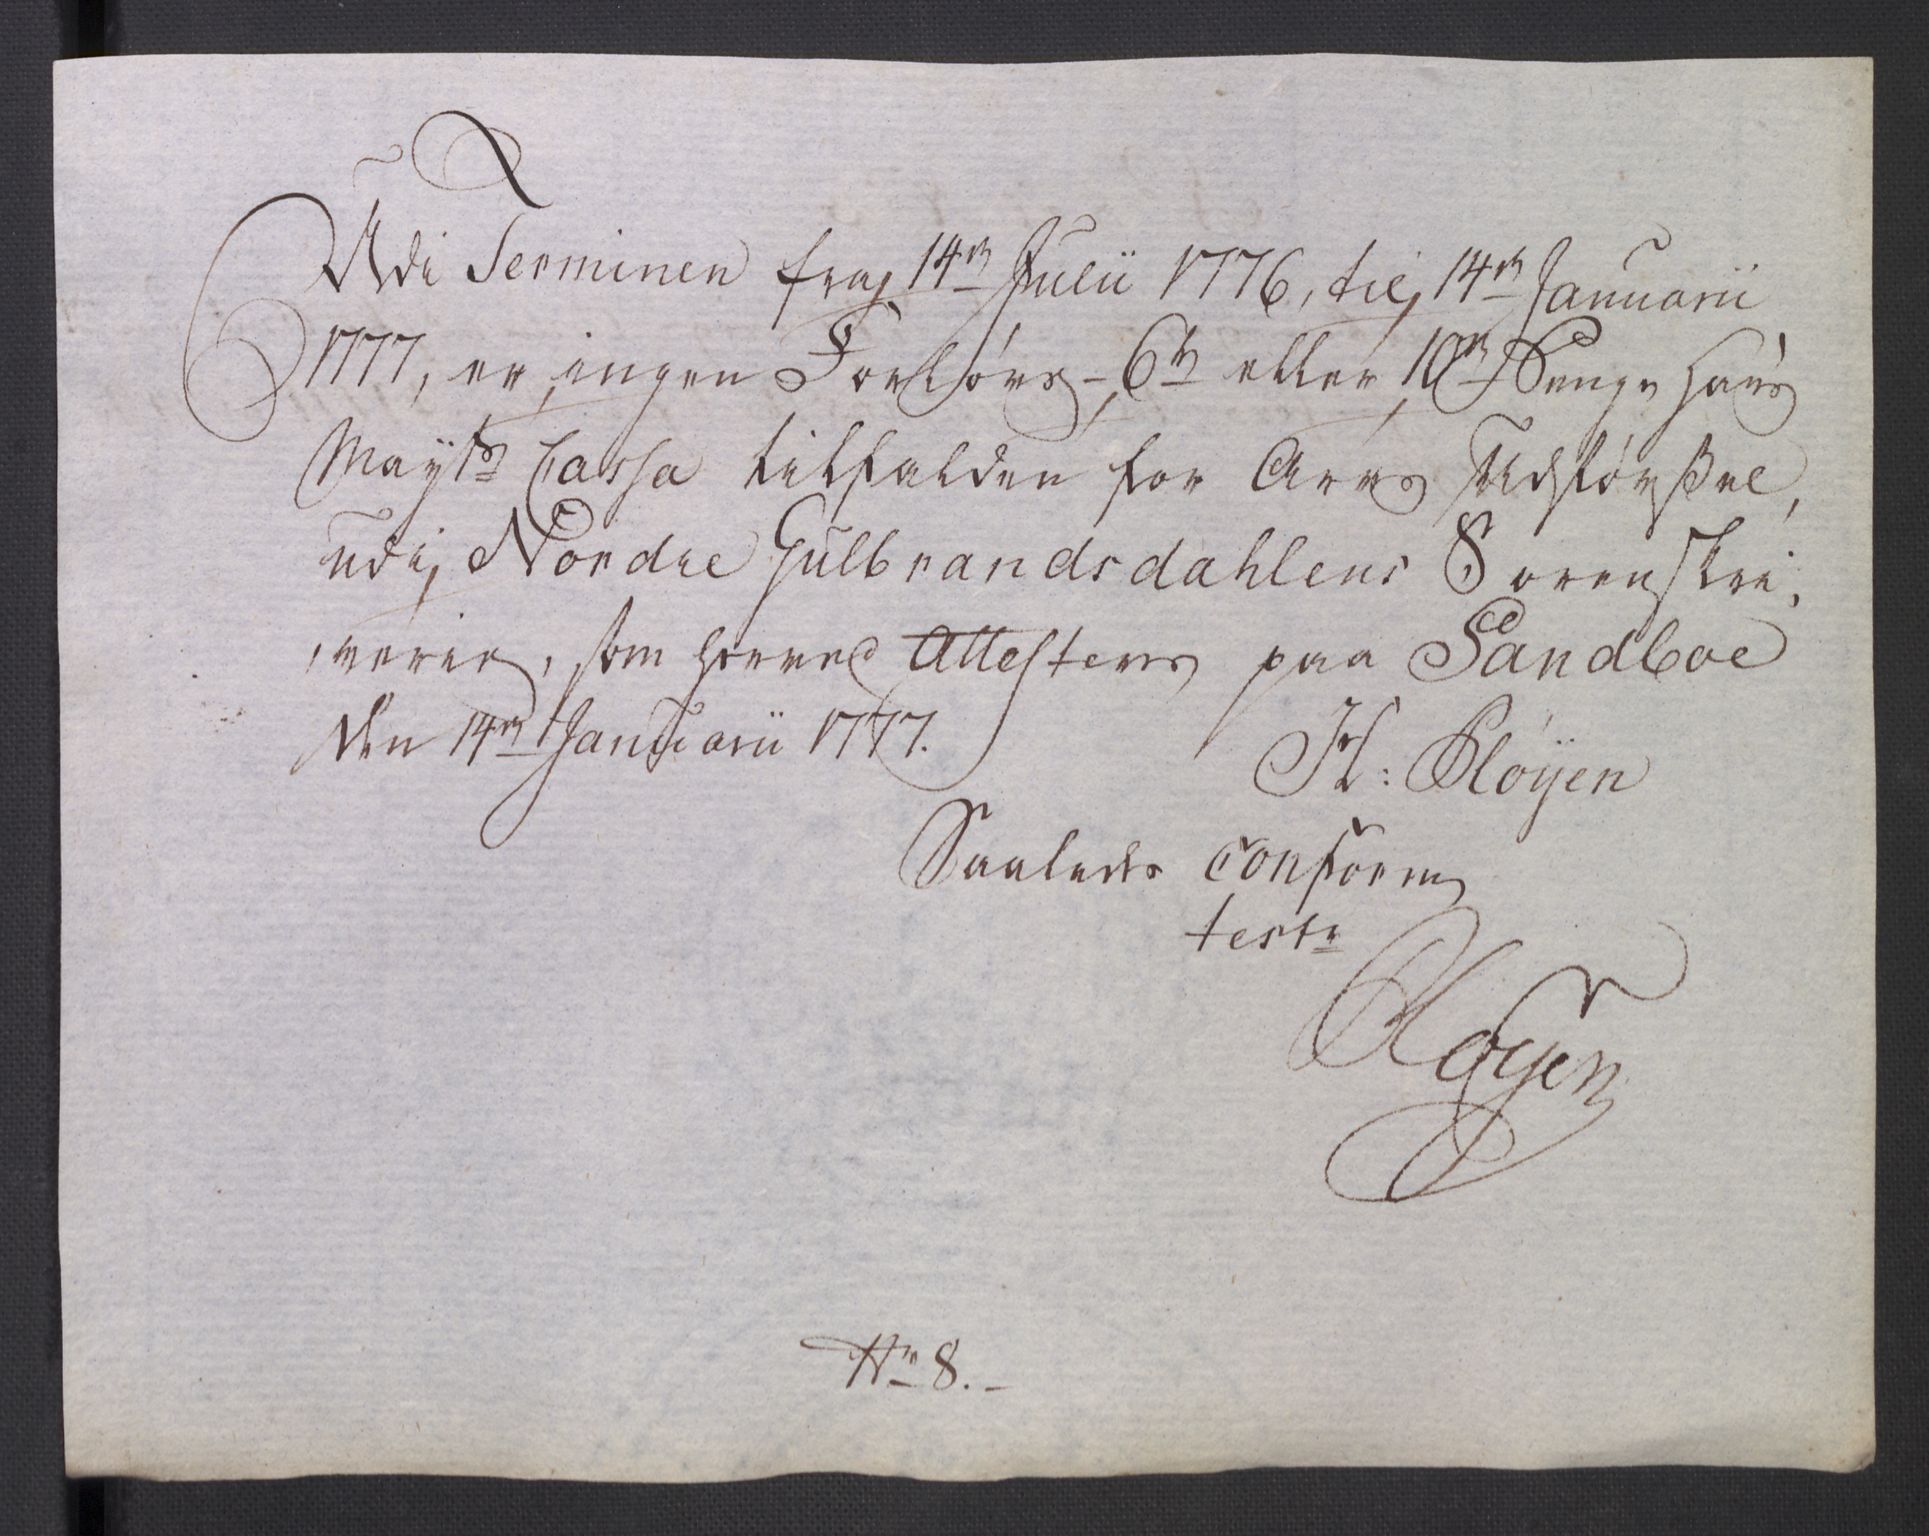 Udi Terminen fra 14de Julii 1776, til 14de Januarii
1777, er ingen Forlovs- 6te eller 10de Penge Hans
Mayts Cassa tilfalden for Arvs Udførssel,
udi Nordre Gulbrandsdahlens Sorenskri,
,verie, som herved Attesteres paa Sandboe
den 14de Januarii 1777.
H: Pløyen
Saaledes conform
test:
Pløyen
No 8.-